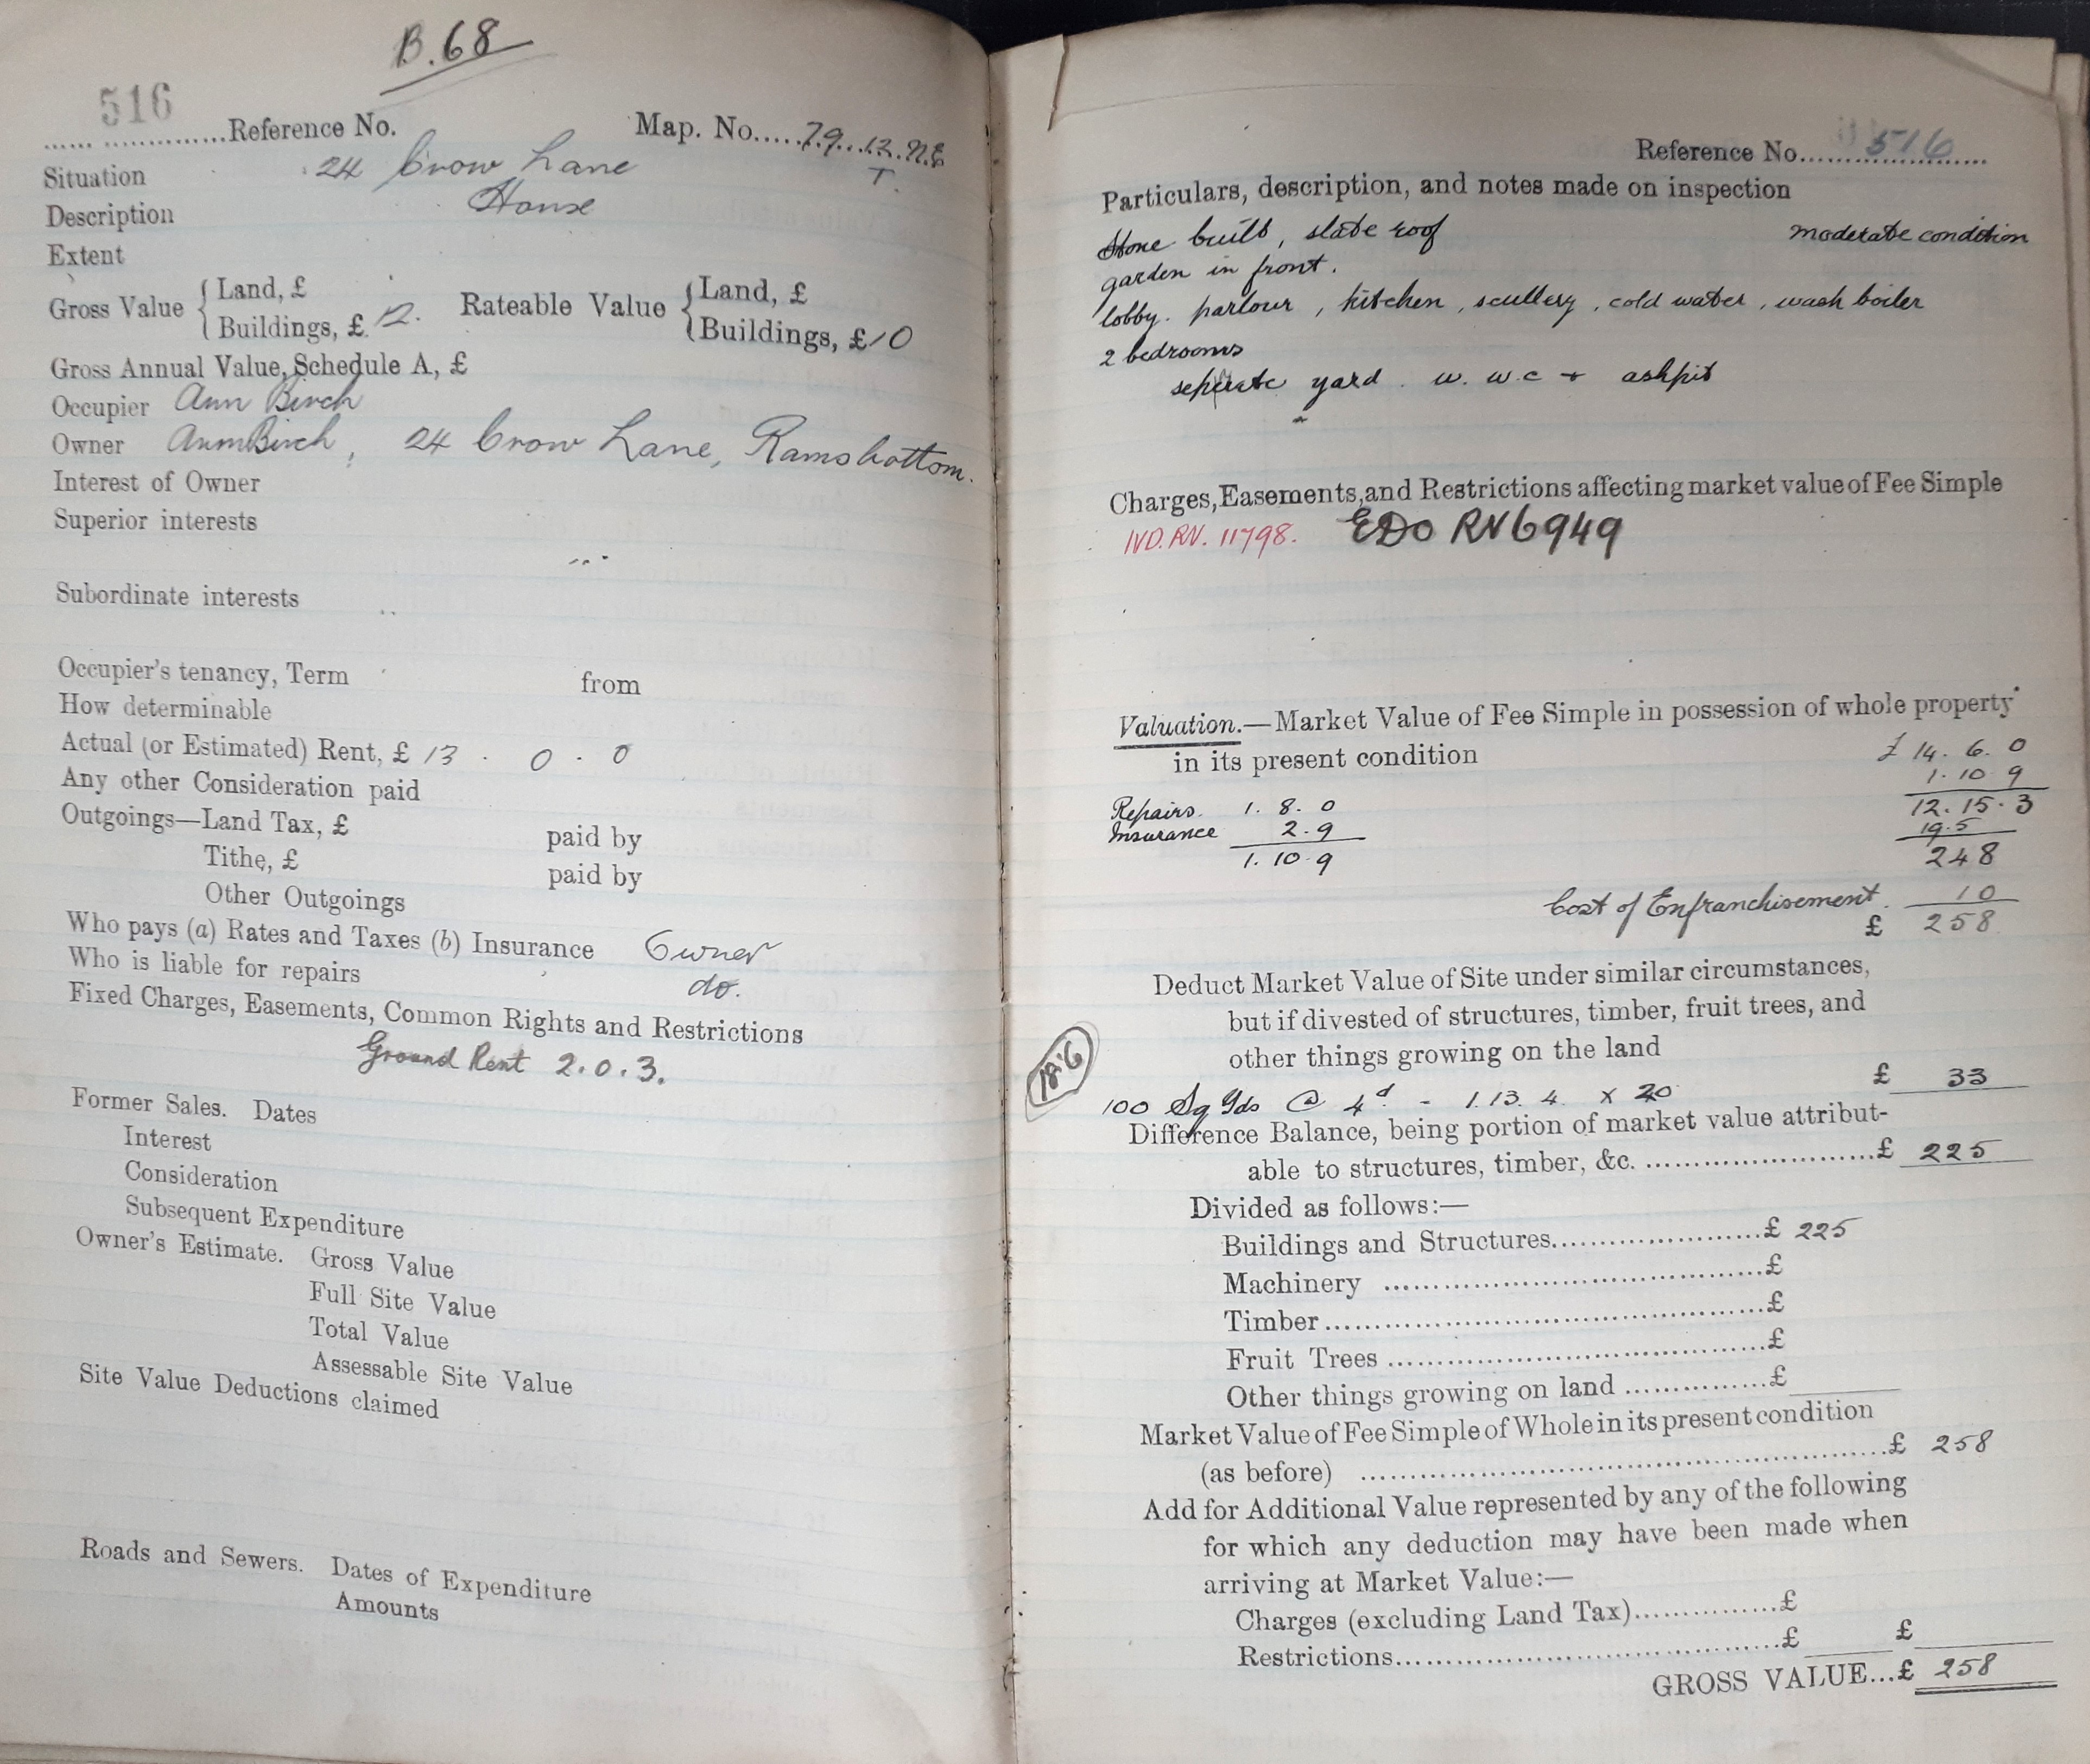 B.68
516
Reference No. Map. No. 79.12.N.E
T.
Situation 24 Crow Lane
Description House
Extent
Gross Value { Land, £ Rateable Value { Land, £
Buildings, £ 12. Buildings, £10
Gross Annual Value, Schedule A, £
Occupier Ann Birch
Owner Ann Birch, 24 Crow Lane, Ramsbottom.
Interest of Owner
Superior interests
Subordinate interests
Occupier's tenancy, Term from
How determinable
Actual (or Estimated) Rent, £ 13 . 0 . 0
Any other Consideration paid
Outgoings—Land Tax, £ paid by
Tithe, £ paid by
Other Outgoings
Who pays (a) Rates and Taxes (b) Insurance Owner
Who is liable for repairs do.
Fixed Charges, Easements, Common Rights and Restrictions
Ground Rent 2.0.3.
Former Sales. Dates
Interest
Consideration
Subsequent Expenditure
Owner's Estimate. Gross Value
Full Site Value
Total Value
Assessable Site Value
Site Value Deductions claimed
Roads and Sewers. Dates of Expenditure
Amounts
Reference No. 516
Particulars, description, and notes made on inspection
Stone built, slate roof moderate condition
garden in front.
lobby. parlour, kitchen, scullery, cold water, wash boiler
2 bedrooms
seperate yard. w. w.c + ashpit
Charges, Easements, and Restrictions affecting market value of Fee Simple
IVD. RV. 11798. EDO RV6949
Valuation.—Market Value of Fee Simple in possession of whole property
in its present condition £ 14. 6. 0
1. 10 9
Repairs. 1. 8. 0 12. 15. 3
Insurance 2. 9 19.5
1. 10. 9 248
Cost of Enfranchisement. 10
£ 258
Deduct Market Value of Site under similar circumstances,
but if divested of structures, timber, fruit trees, and
other things growing on the land
£ 33
100 Sq Yds @ 4d - 1. 13. 4. x 20
Difference Balance, being portion of market value attribut-
able to structures, timber, &c. £ 225
Divided as follows:—
Buildings and Structures £ 225
Machinery £
Timber £
Fruit Trees £
Other things growing on land £
Market Value of Fee Simple of Whole in its present condition
(as before) £ 258
Add for Additional Value represented by any of the following
for which any deduction may have been made when
arriving at Market Value:—
Charges (excluding Land Tax) £
Restrictions £ £
GROSS VALUE...£ 258